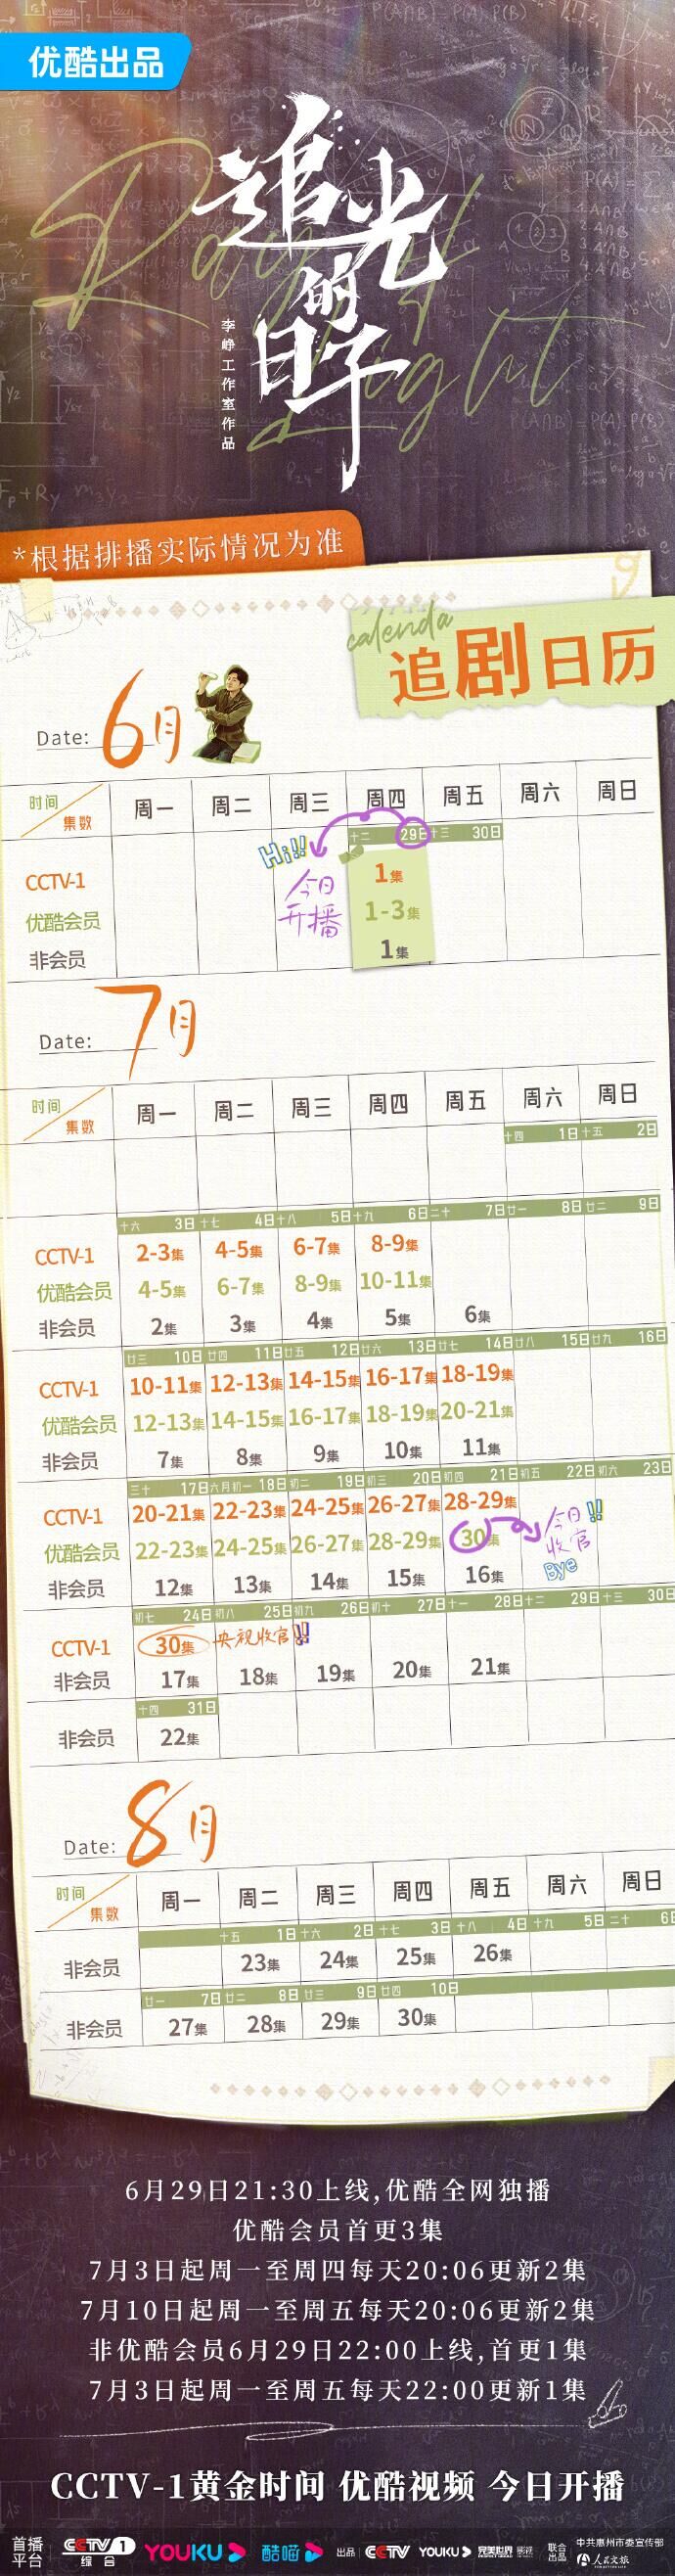 优酷出品
Ray of Light
追光的日子
李峥工作室作品
*根据排播实际情况为准
calenda
追剧日历
Date: 6月
时间 集数 周一 周二 周三 周四 周五 周六 周日
十二 29日 十三 30日
Hi!!
今日开播
CCTV-1 1集
优酷会员 1-3集
非会员 1集
Date: 7月
时间 集数 周一 周二 周三 周四 周五 周六 周日
十四 1日 十五 2日
十六 3日 十七 4日 十八 5日 十九 6日 二十 7日 廿一 8日 廿二 9日
CCTV-1 2-3集 4-5集 6-7集 8-9集
优酷会员 4-5集 6-7集 8-9集 10-11集
非会员 2集 3集 4集 5集 6集
廿三 10日 廿四 11日 廿五 12日 廿六 13日 廿七 14日 廿八 15日 廿九 16日
CCTV-1 10-11集 12-13集 14-15集 16-17集 18-19集
优酷会员 12-13集 14-15集 16-17集 18-19集 20-21集
非会员 7集 8集 9集 10集 11集
三十 17日 六月初一 18日 初二 19日 初三 20日 初四 21日 初五 22日 初六 23日
CCTV-1 20-21集 22-23集 24-25集 26-27集 28-29集
优酷会员 22-23集 24-25集 26-27集 28-29集 30集
今日收官!!
Bye
非会员 12集 13集 14集 15集 16集
初七 24日 初八 25日 初九 26日 初十 27日 十一 28日 十二 29日 十三 30日
CCTV-1 30集 央视收官!!
非会员 17集 18集 19集 20集 21集
十四 31日
非会员 22集
Date: 8月
时间 集数 周一 周二 周三 周四 周五 周六 周日
十五 1日 十六 2日 十七 3日 十八 4日 十九 5日 二十 6日
非会员 23集 24集 25集 26集
廿一 7日 廿二 8日 廿三 9日 廿四 10日
非会员 27集 28集 29集 30集
6月29日21:30上线,优酷全网独播
优酷会员首更3集
7月3日起周一至周四每天20:06更新2集
7月10日起周一至周五每天20:06更新2集
非优酷会员6月29日22:00上线,首更1集
7月3日起周一至周五每天22:00更新1集
CCTV-1黄金时间 优酷视频 今日开播
首播平台 CCTV 1 综合 YOUKU 酷喵 出品 CCTV YOUKU 完美世界影视 联合出品 中共惠州市委宣传部 人民文旅